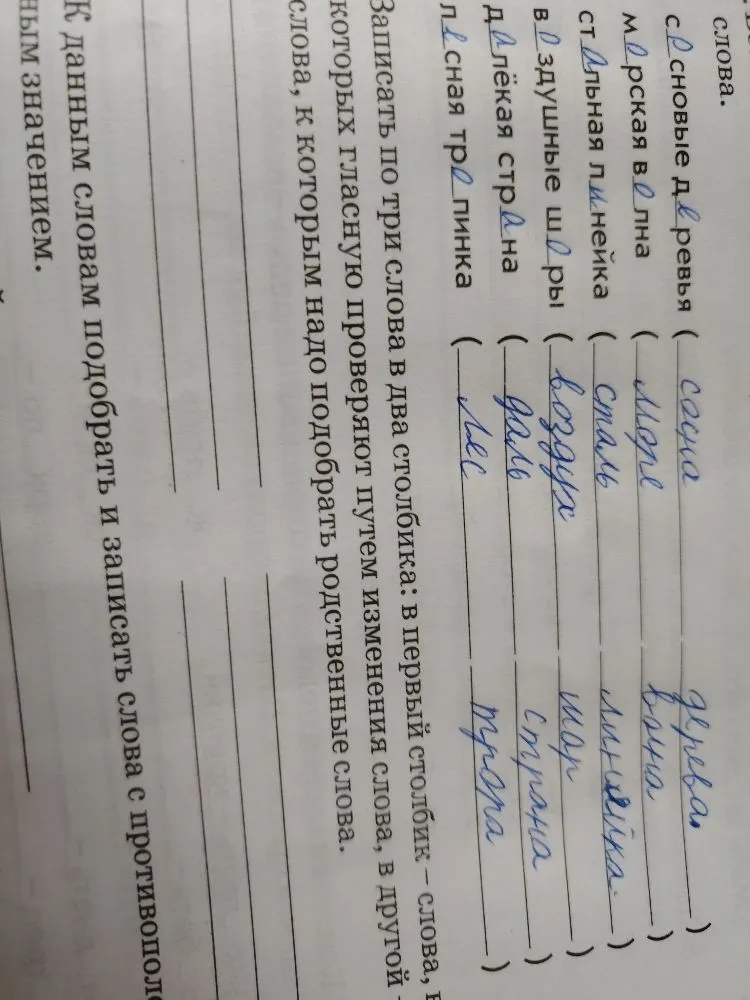 слова.
с о сновые д е ревья ( сосна дерева. )
м о рская в о лна ( море вона )
ст а льная л и нейка ( сталь линяйка. )
в о здушные ш а ры ( воздух шар )
д а лёкая стр а на ( даль страна )
л е сная тр о пинка ( лес трора )
Записать по три слова в два столбика: в первый столбик – слова, в
которых гласную проверяют путем изменения слова, в другой –
слова, к которым надо подобрать родственные слова.
К данным словам подобрать и записать слова с противополо
ным значением.